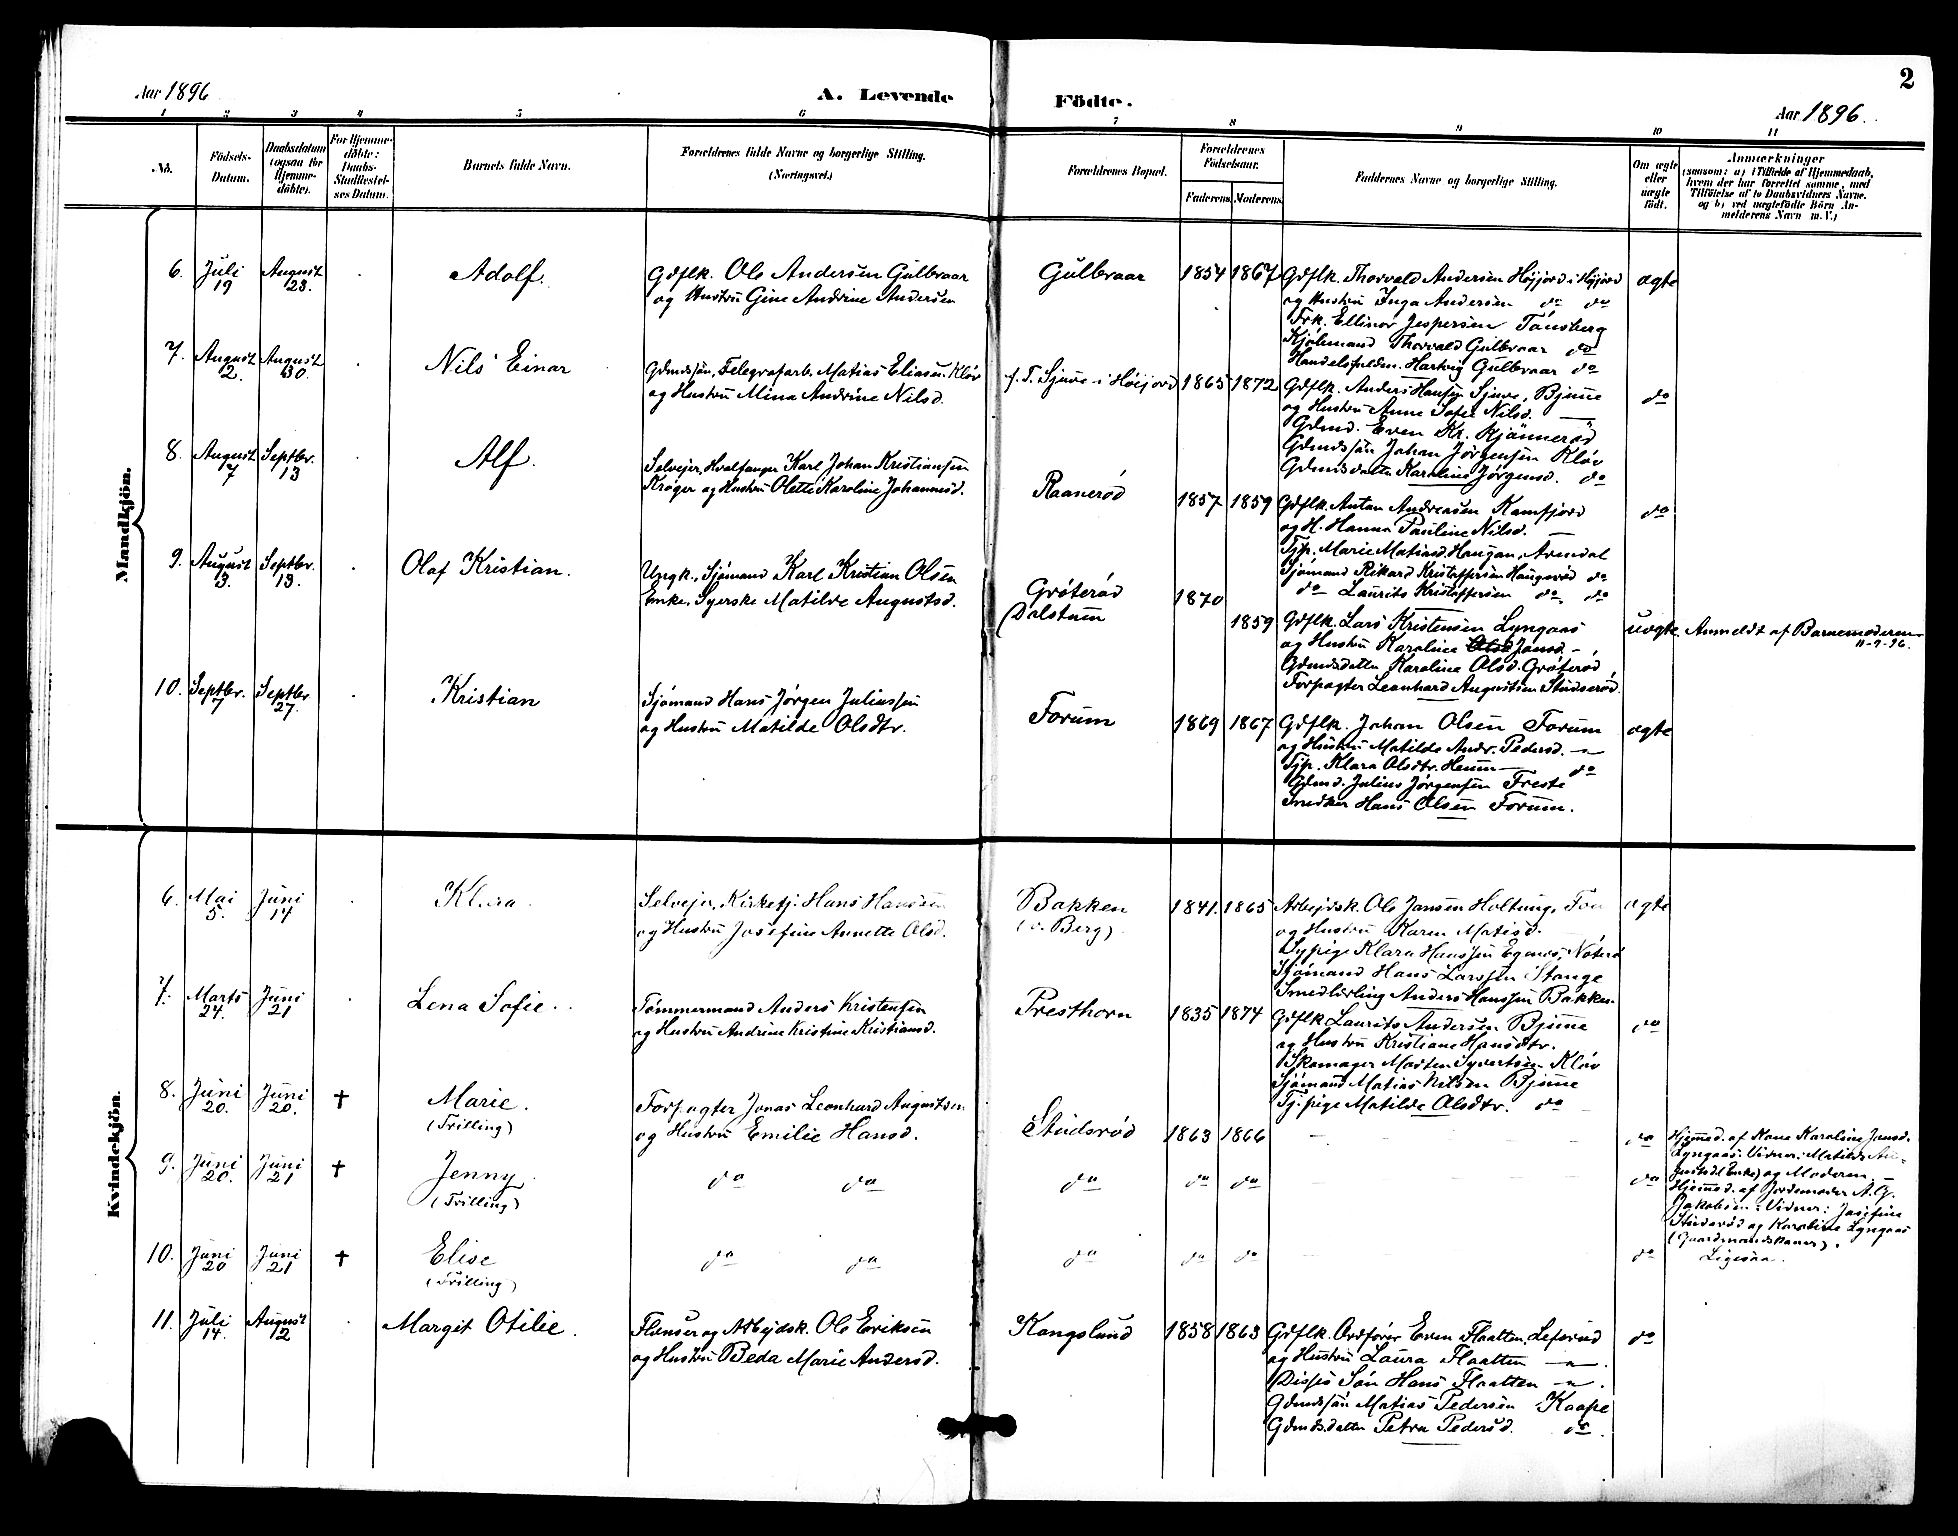 2
Aar 1896
A. Levende Födte.
Aar 1896.
1 2 3 4 5 6 7 8 9 10 11
No.
Födsels-
Datum.
Daabsdatum
(ogsaa for
Hjemme-
döbte).
For Hjemme-
döbte:
Daabs-
Stadfæstel-
ses Datum.
Barnets fulde Navn.
Forældrenes fulde Navne og borgerlige Stilling.
(Næringsvei.)
Forældrenes Bopæl.
Forældrenes
Födselsaar.
Faderens. Moderens.
Faddernes Navne og borgerlige Stilling.
Om ægte
eller
uægte
födt.
Anmærkninger
(saasom: a) i Tilfælde af Hjemmedaab,
hvem der har forrettet samme, med
Tilföielse af to Daabsvidners Navne.
og b) ved uægtefödte Börn An-
melderens Navn m. V.)
Mandkjön.
6. Juli 19 August 23. Adolf.
Gdflk. Ole Andersen Gulbraar
og Hustru Gine Andrine Andersen
Gulbraar 1854 1867
Gdflk. Thorvald Andersen Höijord i Höijord
og Hustru Inga Andersen do do
Frk. Ellinor Jespersen Tönsberg
Kjölemand Thorvald Gulbraar do
Handelsfuldm. Hartvig Gulbraar do
ægte
7. August 2. August 30. Nils Einar
Gdmdssön, Telegrafarb. Matias Eliasen Kløv
og Hustru Mina Andrine Nilsd.
f. T. Sjuve i Höijord 1865 1872
Gdflk. Anders Hansen Sjuve, Bjune
og Hustru Anne Sofie Nilsd. —
Gdmd. Even Kr. Kjönnerød
Gdmdssön Johan Jørgensen Kløv
Gdmdsdatter Karoline Jørgensd. do
do
8. August 7 Septbr. 13 Alf.
Selvejer, Hvalfanger Karl Johan Kristiansen
Krøger og Hustru Olette Karoline Johannesd.
Raanerød 1857 1859
Gdflk. Anton Andreasen Kamfjord
og H. Hanna Pauline Nilsd. —
Tjp. Marie Matiasd. Haugan, Arendal
Sjömand Rikard Kristoffersen Haugerød do
do Laurits Kristoffersen do do
do
9. August 3. Septbr. 13. Olaf Kristian.
Ungk., Sjömand Karl Kristian Olsen
Enke, Syerske Matilde Augustsd.
Grøterød
Dalstum
1870
1859
Gdflk. Lars Kristensen Lyngaas
og Hustru Karoline Jansd —,
Gdmdsdatter Karoline Olsd. Grøterød
Forpagter Leonhard Augustsen Studserød.
uægte
Anmeldt af Barnemoderen
11-9-96.
10. Septbr. 7 Septbr. 27. Kristian
Sjömand Hans Jørgen Juliussen
og Hustru Matilde Olsdtr.
Forum 1869 1867
Gdflk. Johan Olsen Forum
og Hustru Matilde Andr. Pedersd. —
Tjp. Klara Olsdtr. Heum — do
Gdmd. Julius Jørgensen Freste
Snedker Hans Olsen Forum.
ægte
Kvindekjön.
6. Mai 5. Juni 14 Klara.
Selvejer, Kirketj. Hans Hansen
og Hustru Josefine Annette Olsd.
Bakken
(v. Berg).
1841. 1865
Arbejdsk. Ole Jansen Holtung,
og Hustru Karen Matisd.
Sypige Klara Hanssen Egenes, Nøterø
Sjömand Hans Larssen Stange
Smedlærling Anders Hanssen Bakken
ægte
7. Marts 24. Juni 21 Lena Sofie.
Tømmermand Anders Kristensen
og Hustru Andrine Kristine Kristiansd.
Presthorn 1835 1874
Gdflk Laurits Andersen Bjune
og Hustru Kristiane Hansdtr.
Skomager Morten Syvertsen Kløv
Sjömand Matias Nilsen Bjune
Tj.pige Matilde Olsdtr. do
do
8. Juni 20. Juni 20. † Marie.
(Trilling)
Forpagter Jonas Leonhard Augustsen
og Hustru Emilie Hansd.
Studsrød 1863 1866 — — — — — do
Hjemmed. af Kone Karoline Jansd.
Lyngaas: Vidner: Matilde Au-
gustsd (Enke) og Moderen. —
9. Juni 20. Juni 21 † Jenny.
(Trilling)
do do do do do — — — — — do
Hjemmed. af Jordemoder A. G.
Jakobsen: Vidner: Josefine
Studsrød og Karoline Lyngaas
(Gaardmandskoner).
10. Juni 20 Juni 21 † Elise
(Trilling)
do do do do do — — — — — do
Ligesaa.
11. Juli 14. August 2 Margit Otilie.
Flenser og Arbejdsk. Ole Eriksen
og Hustru Beda Marie Andersd.
Kongslund 1858 1863
Gdflk. Ordfører Even Flaatten,
og Hustru Laura Flaatten —
Disses Sön Hans Flaatten —
Gdmdssön Matias Pedersen Kaape
Gdmdsdatter Petra Pedersd. do
do